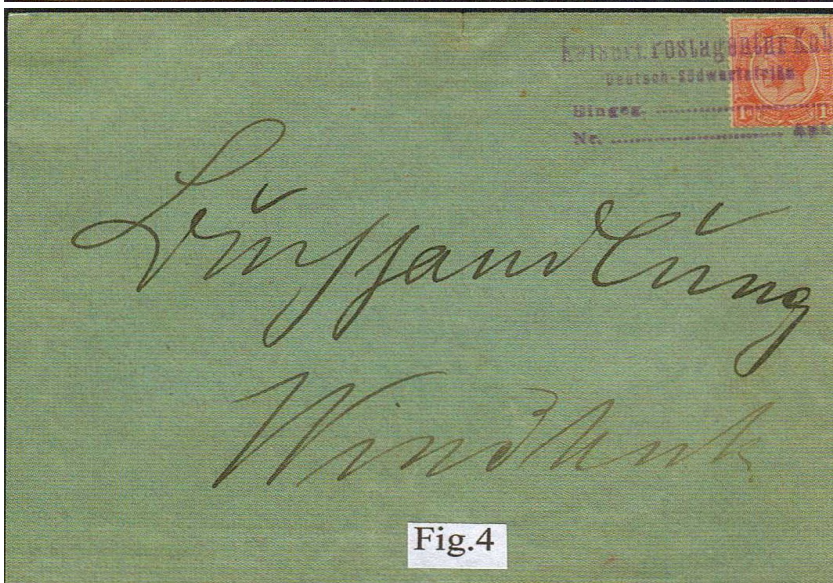 Kaiserl. Postagentur Kub
Deutsch-Südwestafrika
Eingeg.
Nr.
1D 1
Buchhandlung
Windhuk
Fig.4